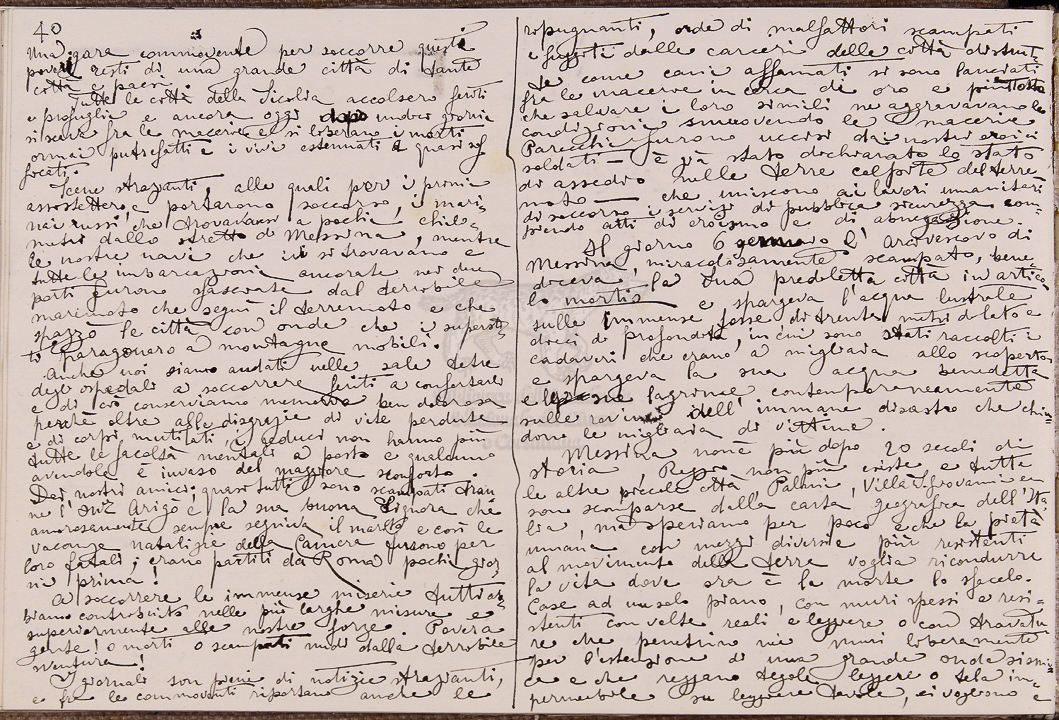 40
Una gara commovente per soccorre queste
povere resti di una grande città di tante
città e paesi.
Tutte le città della Sicilia accolsero feriti
e profughi e ancora oggi dopo undici giorni
si scava fra le macerie e si liberano i morti
ormai putrefatti e i vivi estenuati e quasi sof
focati.
Scene strazianti, alle quali per i primi
assistettero, e portarono soccorso, i mari=
nai russi che trovavansi a pochi chilo=
metri dallo stretto di Messina, mentre
le nostre navi che ivi si trovavano e
tutte le imbarcazioni ancorate nei due
porti furono sfasciate dal terribile
maremoto che seguì il terremoto e che
spazzò le città con onde che i supersti
ti paragonaro a montagne mobili.
Anche noi siamo andati nelle sale tetre
degli ospedali a soccorrere feriti a confortarli
e di ciò conserviamo memoria ben dolorosa
perchè oltre alle disgrazie di vite perdute
e di corpi mutilati, i reduci non hanno più
tutte le facoltà mentali a posto e qualcuno
avendole è invaso del maggiore sconforto.
Dei nostri amici quasi tutti sono scampati tran
ne l'On. Arigò e la sua buona Signora che
amorosamente sempre seguiva il marito e così le
vacanze natalizie della Camera furono per
loro fatali; erano partiti da Roma pochi gior
ni prima!
A soccorrere le immense miserie tutti ab=
biamo contribuito nelle più larghe misure e
superiormente alle nostre forze. Povera
gente! o morti o scampati nudi dalla terribile
sventura!
I giornali son pieni di notizie strazianti,
e fra le commoventi riportano anche le
ripugnanti, orde di malfattori scampati
e fuggiti dalle carceri delle città distrut
te come cani affamati si sono lanciati
fra le macerie in cerca di oro e piuttosto
che salvare i loro simili ne aggravavano le
condizioni smuovendo le macerie
Parecchi furono uccisi dai nostri eroici
soldati — è già stato dichiarato lo stato
di assedio nelle terre colpite del terre
moto — che uniscono ai lavori umanitari
di soccorso i servizi di pubblica sicurezza com=
piendo atti di eroismo e di abnegazione.
Il giorno 6 gennaio l'Arcivescovo di
Messina, miracolosamente scampato, bene=
diceva la sua prediletta città in artico
lo mortis e spargeva l'acqua lustrale
sulle immense fosse di trenta metri di lato e
dieci di profondità, in cui sono stati raccolti i
cadaveri che erano a migliaia allo scoperto
e spargeva la sua acqua benedetta
e le sue lagrime contemporaneamente
sulle rovine dell'immane disastro che chiu=
dono le migliaia di vittime.
Messina non è più dopo 20 secoli di
storia Reggio non più esiste e tutte
le altre piccole città Palmi, Villa S. Giovanni ecc
sono scomparse dalla carta geografica dell'Ita
lia, ma speriamo per poco e che la pietà
umana con mezzi diversi e più resistenti
al movimento della terra voglia ricondurre
la vita dove ora è la morte lo sfacelo.
Case ad un solo piano, con muri spessi e resi=
stenti con volte reali e leggere o con travatu
re che penetrino nei muri liberamente
per l'estensione di una grande onda sismi=
ca e che reggano tegole leggere o tela im=
permeabile su leggiere tavole, ci vogliono e